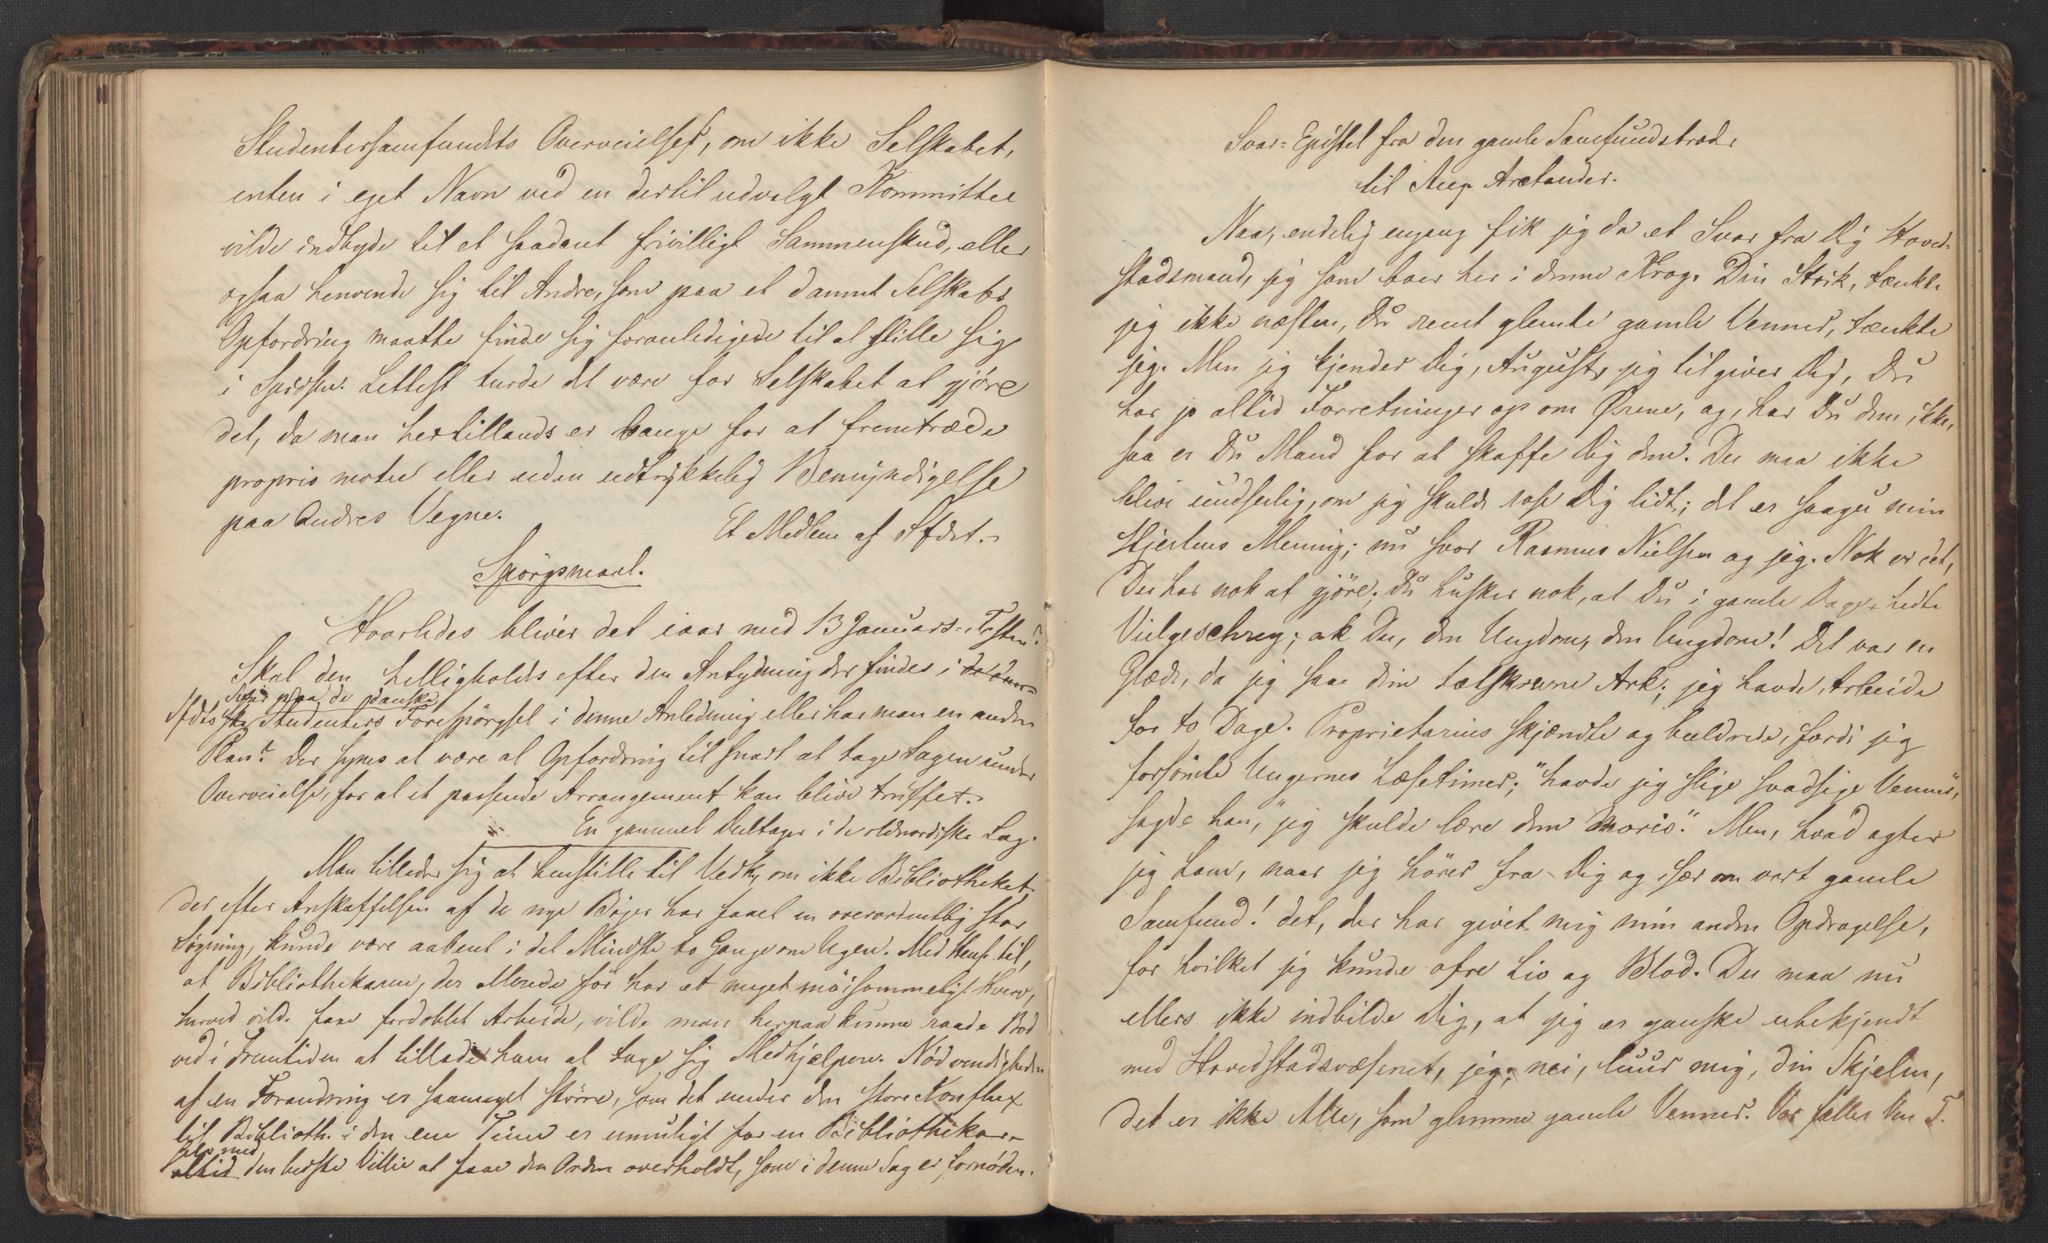 Studentersamfundets Overveielse, om ikke Selskabet,
enten i eget Navn ved en dertil udvalgt Kommittee
vilde indbyde til et saadant frivilligt Sammenskud, eller
ogsaa henvende sig til Andre, som paa et dannet Selskabs
Opfordring maatte finde sig foranledigede til at stille sig
i Spidsen. Lettest turde det være for Selskabet at gjöre
det, da man hertillands er bange for at fremtræde
proprio motu eller uden udtrykkelig Bemyndigelse
paa Andres Vegne.
Et Medlem af Sfdet.
Spörgsmaal.
Hvorledes bliver det iaar med 13 Januars-Festen?
Skal den helligholdes efter den Antydning der findes i
Svar paa de danske
Sfdets Studenters Forespörgsel i denne Anledning eller har man en anden
Plan? Der synes at være al Opfordring til snart at tage Sagen under
Overveielse, for at et passende Arrangement kan blive truffet.
En gammel Deltager i de oldnordiske Lag.
Man tillader sig at henstille til Vedk, om ikke Bibliotheket
der efter Anskaffelsen af de nye Böger har faaet en overordentlig stor
Sögning, kunde være aabent i det Mindste to Gange om Ugen. Med Hens. til,
at Bibliothekaren, der Allerede för har et meget möisommeligt Hverv,
herved vilde faae fordoblet Arbeide, vilde man herpaa kunne raade Bod
ved i Fremtiden at tillade ham at tage sig Medhjælpere. Nödvendigheden
af en Forandring er saameget större, som det under den store Konflux
til Biblioth. i den ene Time er umuligt for en Bibliothekar
selv med
altid den bedste Villie at faae den Orden overholdt, som i denne Sag er fornöden.
Svar-Epistel fra den gamle Samfundstræde
til Aug. Arctander.
Naa, endelig engang fik jeg da et Svar fra Dig Hoved-
stadsmand, jeg som boer her i denne Krog. Din Strik, tænkte
jeg ikke næsten, Du reent glemte gamle Venner, tænkte
jeg. Men jeg kjender Dig, August, jeg tilgiver Dig, Du
har jo altid Forretninger op om Ørene, og, har Du dem ikke,
saa er Du Mand for at skaffe Dig dem. Du maa ikke
blive undseelig, om jeg skulde rose Dig lidt; det er saagu min
Hjertens Mening; nu svor Rasmus Nielsen og jeg. Nok er det,
Du har nok at gjöre; Du husker nok, at Du i gamle Dage hedte
Vielgeschrey; ak Du, den Ungdom, den Ungdom! Det var en
Glæde, da jeg saae dim tætskrevne Ark; jeg havde Arbeide
for to Dage. Proprietarius skjændte og buldrede, fordi jeg
forsömte Ungernes Læsetimer; "havde jeg slige svadsige Venner",
sagde han, "jeg skulde lære dem Moris." Men, hvad agter
jeg ham, naar jeg hörer fra Dig og især om vort gamle
Samfund! det, der har givet mig min anden Opdragelse,
for hvilket jeg kunde ofre Liv og Blod. Du maa nu
ellers ikke indbilde Dig, at jeg er ganske ubekjendt
med Hovedstadsvæsenet, jeg; nei, luur mig, din Skjelm,
det er ikke Alle, som glemme gamle Venner. Vor fælles Ven T.